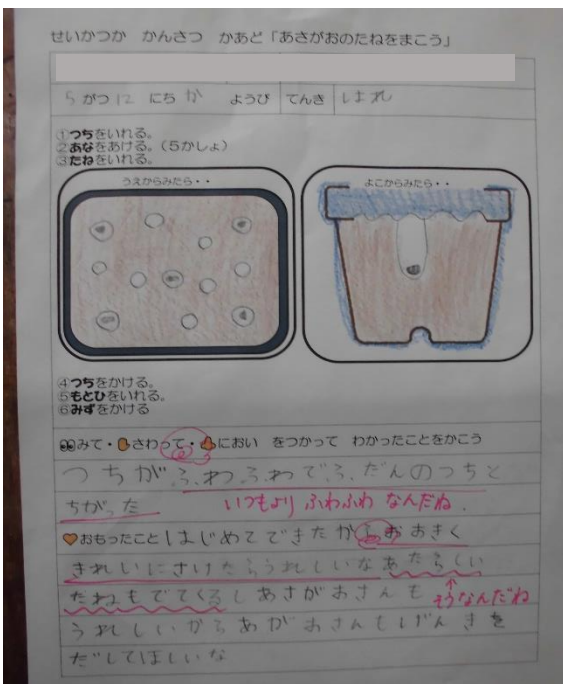 せいかつか かんさつ かあど「あさがおのたねをまこう」
5 がつ 12 にち か ようび てんき はれ
①つちをいれる。
②あなをあける。（５かしょ）
③たねをいれる。
うえからみたら・・
よこからみたら・・
④つちをかける。
⑤もとひをいれる。
⑥みずをかける
みて・さわって・におい をつかって わかったことをかこう
つちがふわふわでふだんのつちと
ちがった
いつもより ふわふわ なんだね.
おもったこと はじめてできたからおおきく
きれいにさけたらうれしいなあたらしい
たねもでてくるしあさがおさんも
そうなんだね
うれしいからあがおさんもげんきを
だしてほしいな